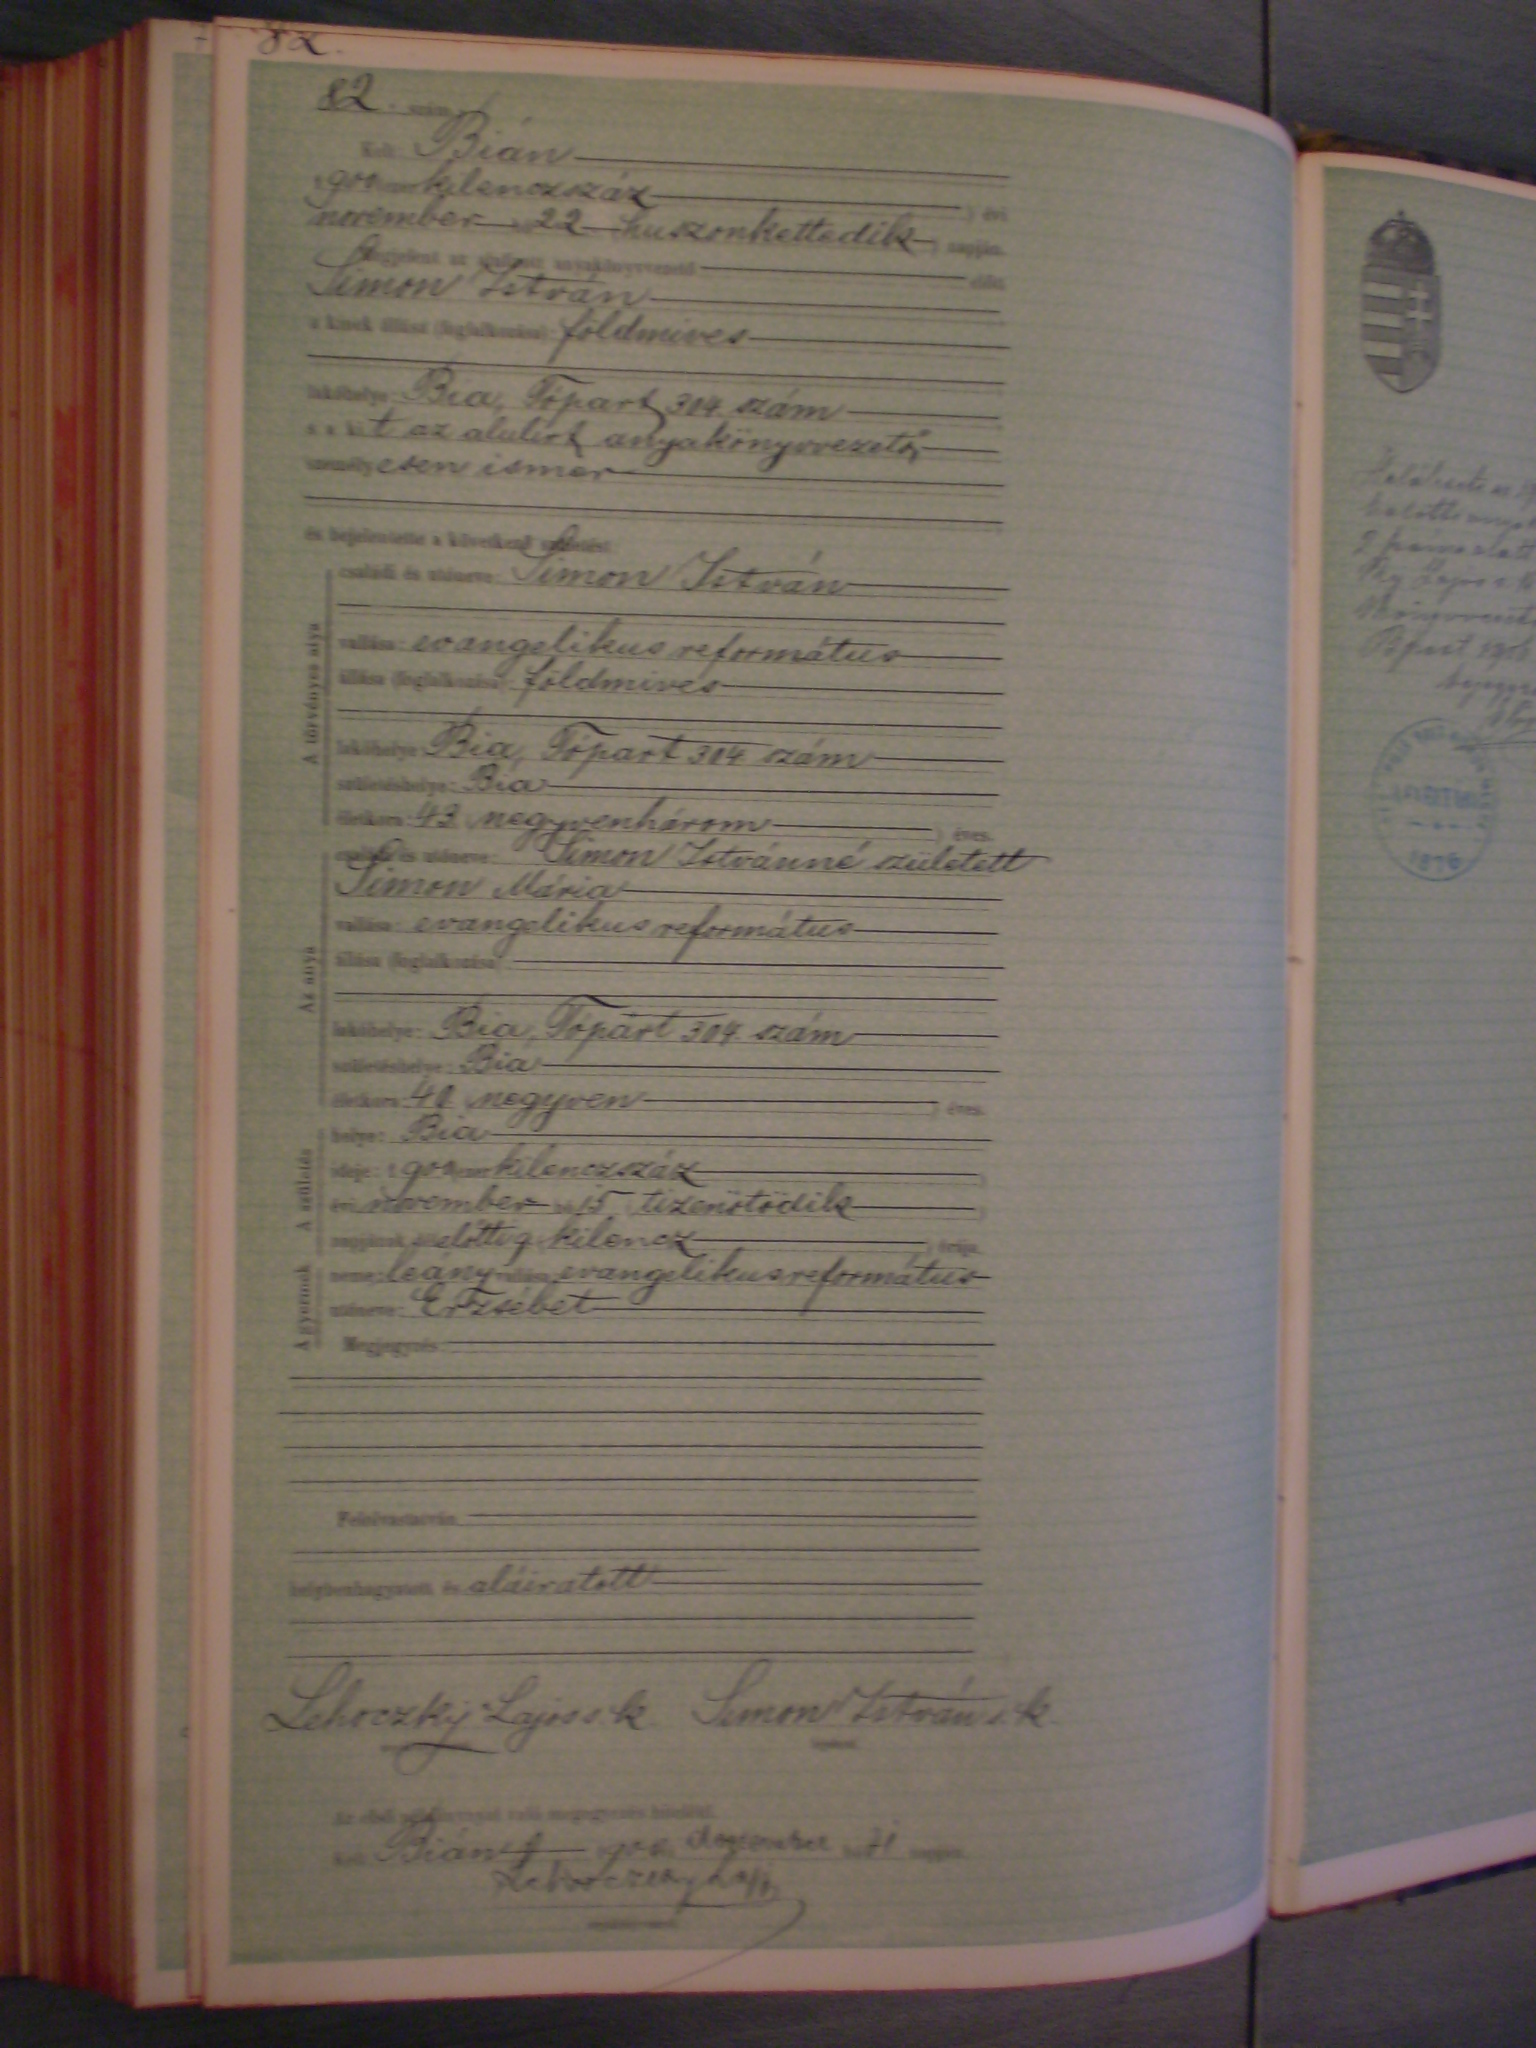 82.
82. szám.
Kelt: Bián
1900 ezer kilenczszáz ) évi
november hó 22 (huszonkettedik ) napján.
Megjelent az alulirott anyakönyvvezető előtt
Simon István
a kinek állása (foglalkozása): földmives
lakóhelye: Bia, Tópart 304. szám
s a kit az alulirt anyakönyvvezető
személyesen ismer
és bejelentette a következő születést:
A törvényes atya
családi és utóneve: Simon István
vallása: evangelikus református
állása (foglalkozása): földmives
lakóhelye: Bia, Tópart 304 szám
születéshelye: Bia
életkora: 43 (negyvenhárom ) éves.
Az anya
családi és utóneve: Simon Istvánné született
Simon Mária
vallása: evangelikus református
állása (foglalkozása):
lakóhelye: Bia, Tópárt 304. szám
születéshelye: Bia
életkora: 40 (negyven ) éves.
A születés
helye: Bia
ideje: 1900 ezer kilenczszáz )
évi november hó 15 (tizenötödik )
napjának délelőtti 9 (kilencz ) órája.
A gyermek
neme: leány vallása: evangelikus református
utóneve: Erzsébet
Megjegyzés:
Felolvastatván,
helybenhagyatott és aláiratott
Lehoczky Lajos s. k. Simon István s. k.
Az első példánynyal való megegyezés hiteléül.
Kelt Bián 1900. december hó 31 napján.
Lehoczky Lajos
anyakönyvvezető.
1876